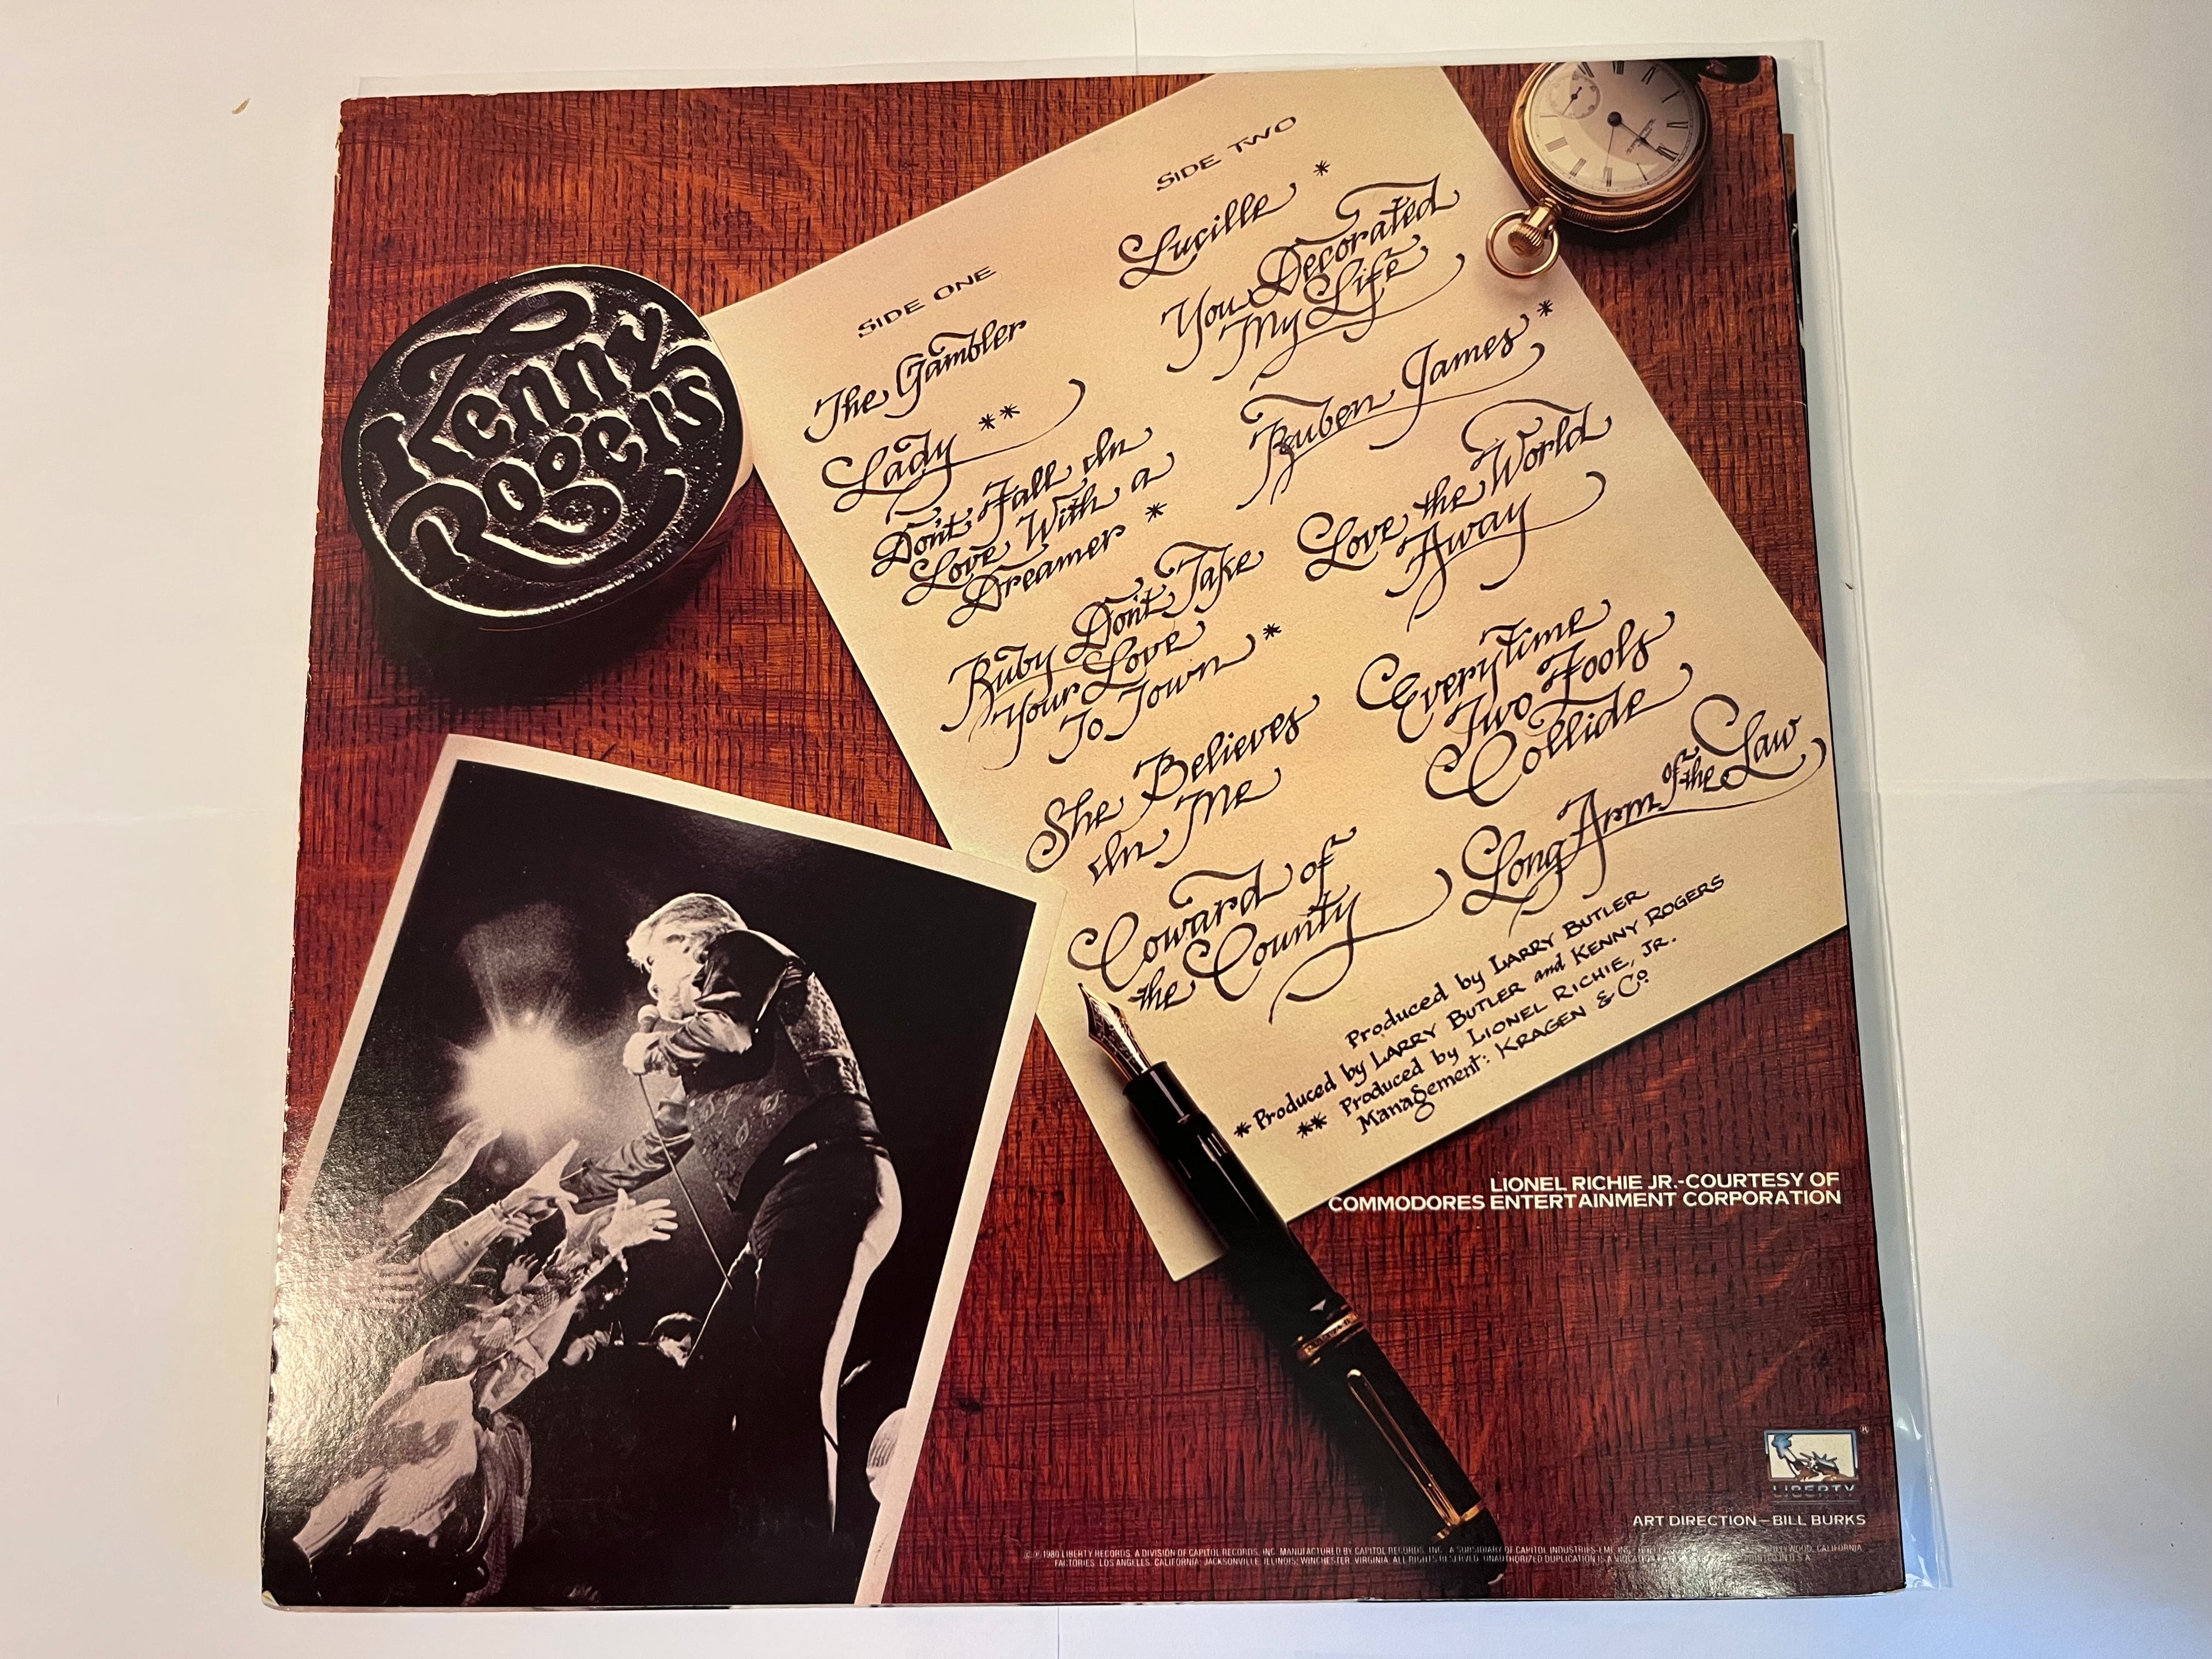 Kenny
Rogers
SIDE ONE
The Gambler
Lady **
Don't Fall In
Love With a
Dreamer *
Ruby Don't Take
Your Love
To Town *
She Believes
In Me
Coward of
the County
SIDE TWO
Lucille *
You Decorated
My Life
Ruben James *
Love the World
Away
Everytime
Two Fools
Collide
Long Arm of the Law
Produced by LARRY BUTLER
* Produced by LARRY BUTLER and KENNY ROGERS
** Produced by LIONEL RICHIE, JR.
Management: KRAGEN & Co
LIONEL RICHIE JR.-COURTESY OF
COMMODORES ENTERTAINMENT CORPORATION
LIBERTY
ART DIRECTION—BILL BURKS
1980 LIBERTY RECORDS, A DIVISION OF CAPITOL RECORDS, INC. MANUFACTURED BY CAPITOL RECORDS, INC. A SUBSIDIARY OF CAPITOL INDUSTRIES-EMI, INC. HOLLYWOOD, CALIFORNIA
FACTORIES: LOS ANGELES, CALIFORNIA; JACKSONVILLE, ILLINOIS; WINCHESTER, VIRGINIA. ALL RIGHTS RESERVED. UNAUTHORIZED DUPLICATION IS A VIOLATION PRINTED IN U.S.A.